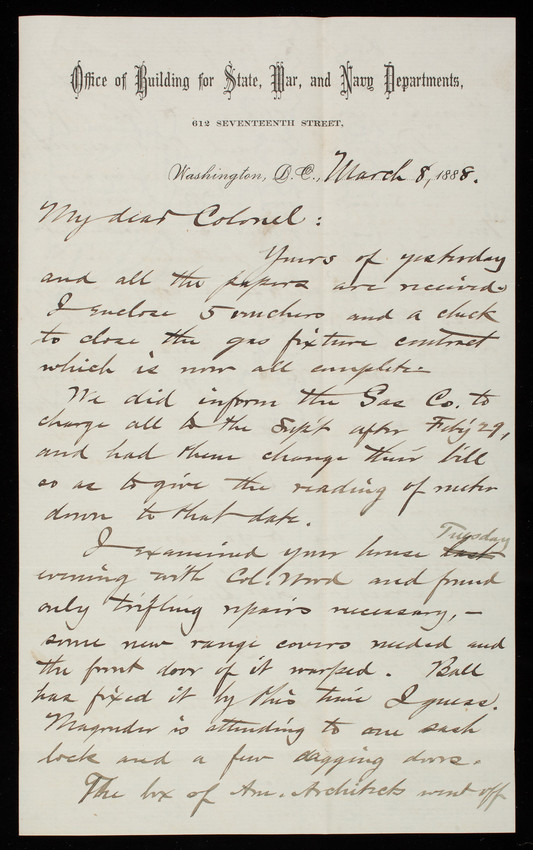 Office of Building for State, War, and Navy Departments,
612 SEVENTEENTH STREET,
Washington, D.C., March 8, 1888.
My dear Colonel:
Yours of yesterday
and all the papers are received.
I enclose 5 vouchers and a check
to close the gas fixture contract
which is now all complete.
We did inform the Gas Co. to
charge all to the Supt after Feby 29,
and had them change their bill
so as to give the reading of meter
down to that date.
I examined your house last Tuesday
evening with Col. Wood and found
only trifling repairs necessary, -
some new range covers needed and
the front door of it warped. Ball
has fixed it by this time I guess.
Magruder is attending to one sash
lock and a few sagging doors.
The box of Am. Architects went off